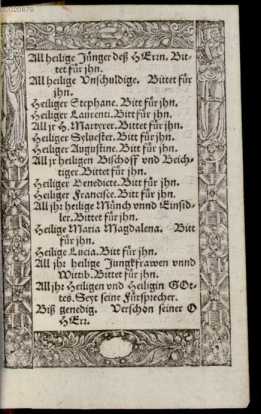 All heilige Jünger deß HErrn. Bit-
tet für jhn.
All heilige Vnschuldige. Bittet für
jhn.
Heiliger Stephane. Bitt für jhn.
Heiliger Laurenti. Bitt für jhn.
All jr H. Martyrer. Bittet für jhn.
Heiliger Syluester. Bitt für jhn.
Heiliger Augustine. Bitt für jhn.
All jr heiligen Bischoff vnd Beich-
tiger. Bittet für jhn.
Heiliger Benedicte. Bitt für jhn.
Heiliger Francisce. Bitt für jhn.
All jhr heilige Münch vnnd Einsid-
ler. Bittet für jhn.
Heilige Maria Magdalena. Bitt
für jhn.
Heilige Lucia. Bitt für jhn.
All jhr heilige Jungkfrawen vnnd
Wittib. Bittet für jhn.
All jhr Heiligen vnd Heiligin GOt-
tes. Seyt seine Fürsprecher.
Biß genedig. Verschon seiner O
HErr.